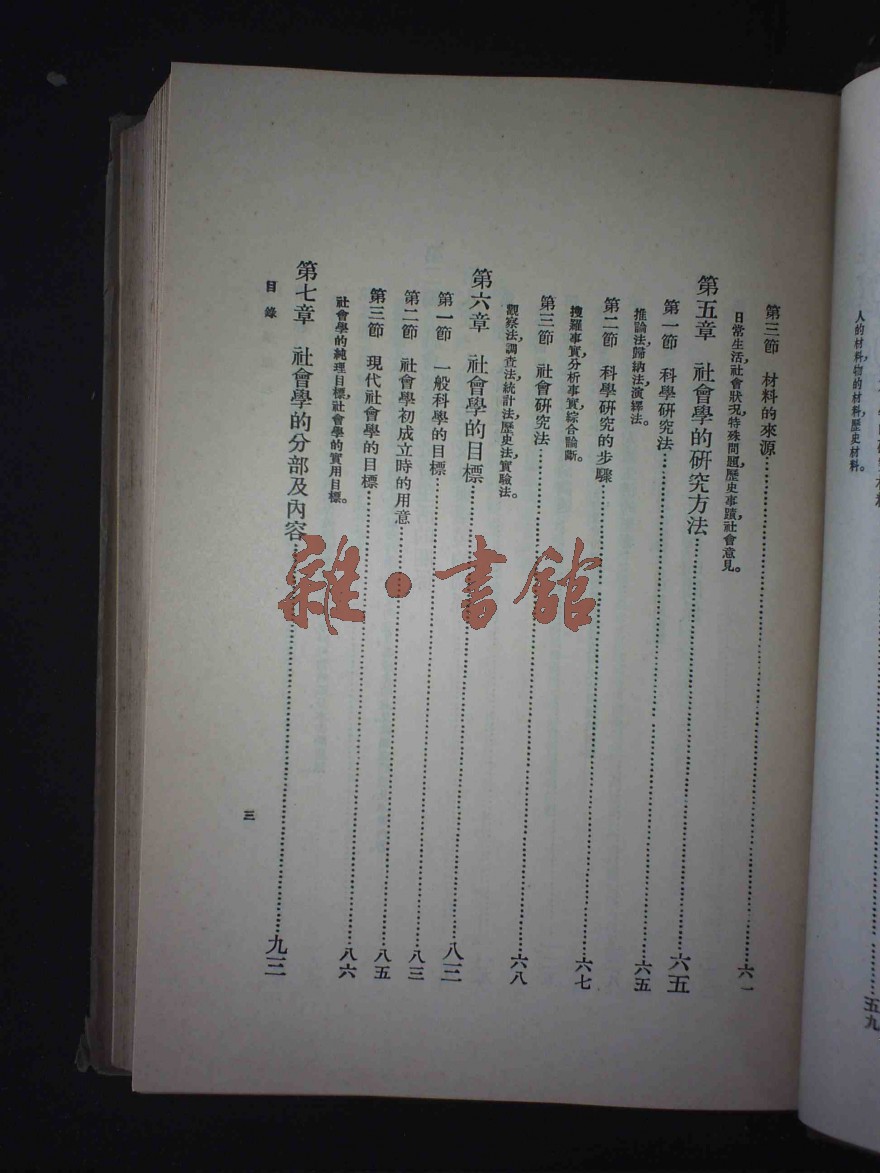 人的材料，物的材料，歷史材料。
五九
第三節　材料的來源……六一
日常生活，社會狀況，特殊問題，歷史事蹟，社會意見。
第五章　社會學的研究方法……六五
第一節　科學研究法……六五
推論法，歸納法，演繹法。
第二節　科學研究的步驟……六七
搜羅事實，分析事實，綜合論斷。
第三節　社會研究法……六八
觀察法，調查法，統計法，歷史法，實驗法。
第六章　社會學的目標……八三
第一節　一般科學的目標……八三
第二節　社會學初成立時的用意……八五
第三節　現代社會學的目標……八六
社會學的純理目標，社會學的實用目標。
第七章　社會學的分部及內容……九三
目錄
三
雜·書館